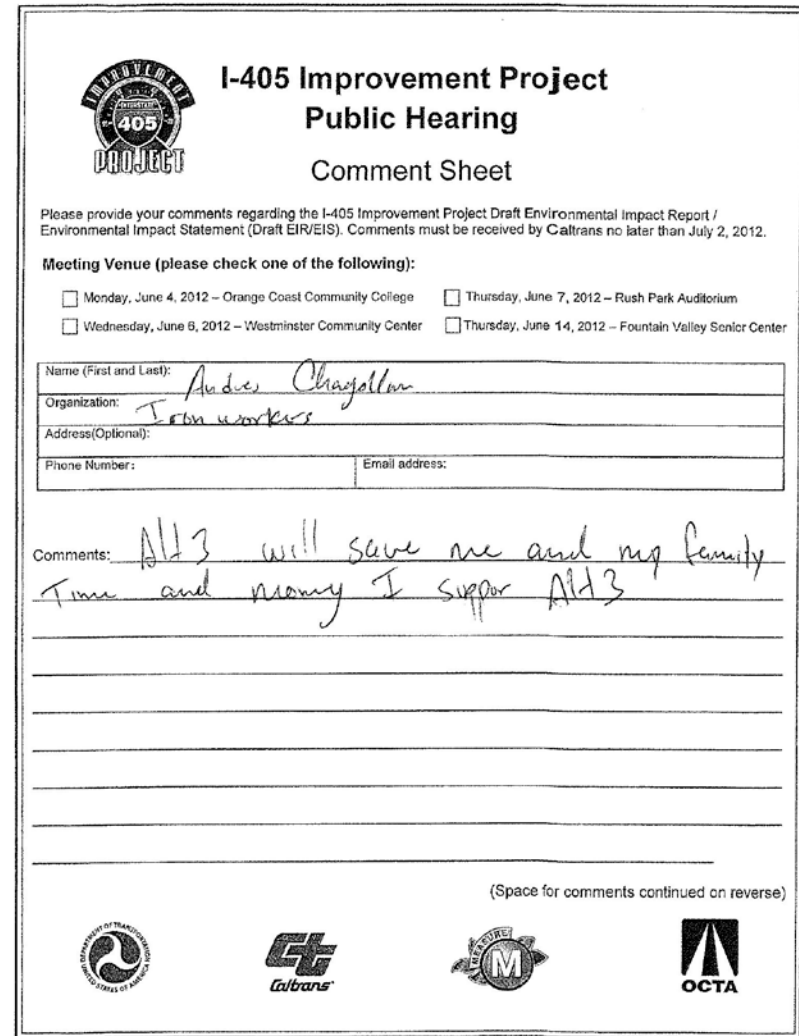 IMPROVEMENT
INTERSTATE
405
PROJECT
I-405 Improvement Project
Public Hearing
Comment Sheet
Please provide your comments regarding the I-405 Improvement Project Draft Environmental Impact Report /
Environmental Impact Statement (Draft EIR/EIS). Comments must be received by Caltrans no later than July 2, 2012.
Meeting Venue (please check one of the following):
Monday, June 4, 2012 – Orange Coast Community College
Thursday, June 7, 2012 – Rush Park Auditorium
Wednesday, June 6, 2012 – Westminster Community Center
Thursday, June 14, 2012 – Fountain Valley Senior Center
Name (First and Last): Andres Chagollan
Organization: Iron workers
Address(Optional):
Phone Number:
Email address:
Comments: Alt 3 will save me and my family
Time and money I suppor Alt 3
(Space for comments continued on reverse)
DEPARTMENT OF TRANSPORTATION
UNITED STATES OF AMERICA
Ct
Caltrans
MEASURE
M
OCTA